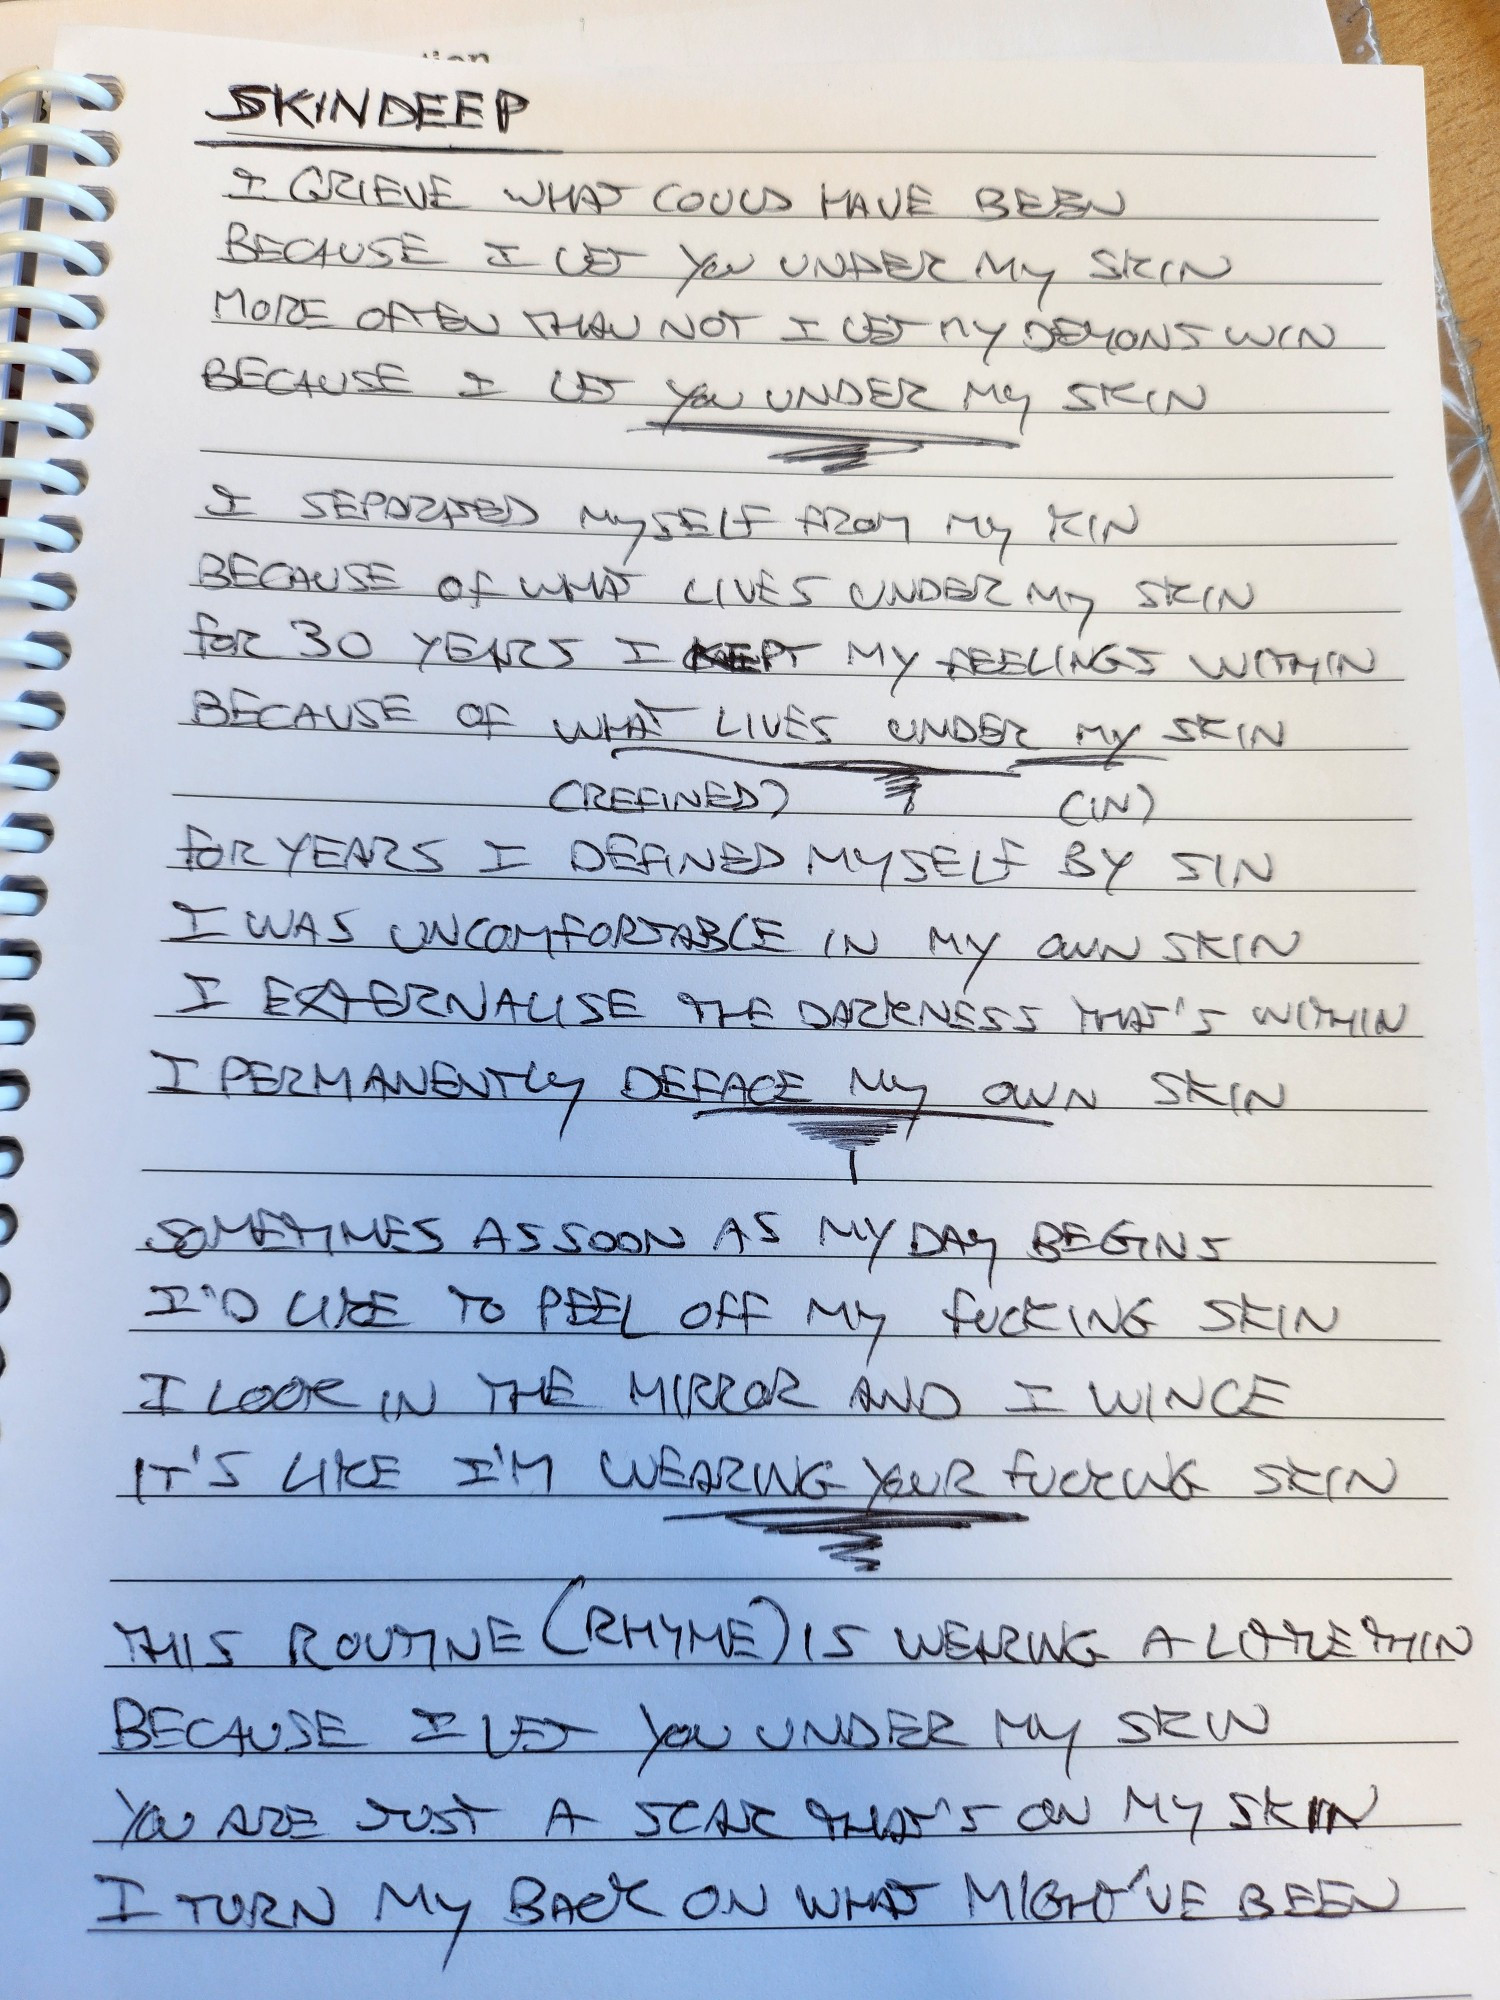 SKINDEEP
I GRIEVE WHAT COULD HAVE BEEN
BECAUSE I LET YOU UNDER MY SKIN
MORE OFTEN THAN NOT I LET MY DEMONS WIN
BECAUSE I LET YOU UNDER MY SKIN
I SEPARATED MYSELF FROM MY KIN
BECAUSE OF WHAT LIVES UNDER MY SKIN
FOR 30 YEARS I KEPT MY FEELINGS WITHIN
BECAUSE OF WHAT LIVES UNDER MY SKIN
(REFINED) (IN)
FOR YEARS I DEFINED MYSELF BY SIN
I WAS UNCOMFORTABLE IN MY OWN SKIN
I EXTERNALISE THE DARKNESS THAT'S WITHIN
I PERMANENTLY DEFACE MY OWN SKIN
SOMETIMES AS SOON AS MY DAY BEGINS
I'D LIKE TO PEEL OFF MY FUCKING SKIN
I LOOK IN THE MIRROR AND I WINCE
IT'S LIKE I'M WEARING YOUR FUCKING SKIN
THIS ROUTINE (RHYME) IS WEARING A LITTLE THIN
BECAUSE I LET YOU UNDER MY SKIN
YOU ARE JUST A SCAR THAT'S ON MY SKIN
I TURN MY BACK ON WHAT MIGHT'VE BEEN